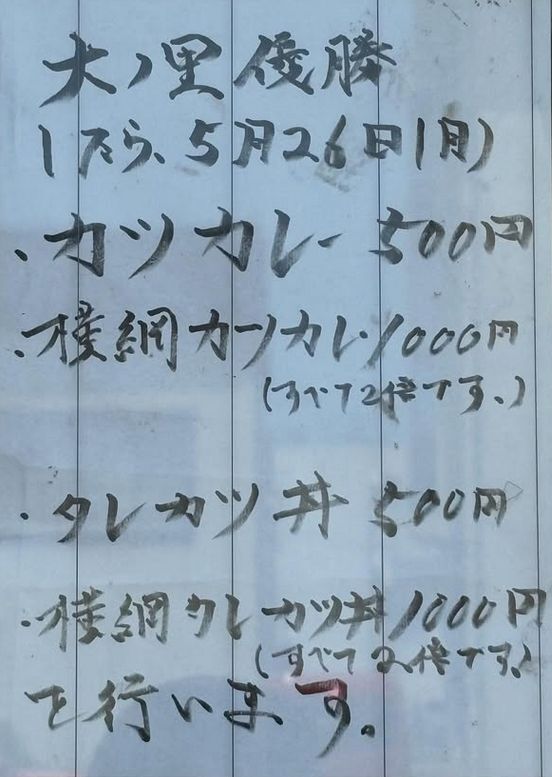 大ノ里優勝
したら、5月26日(月)
・カツカレー 500円
・横綱カツカレー1000円
(すべて2倍です。)
・タレカツ丼 500円
・横綱タレカツ丼1000円
(すべて2倍です。)
を行います。